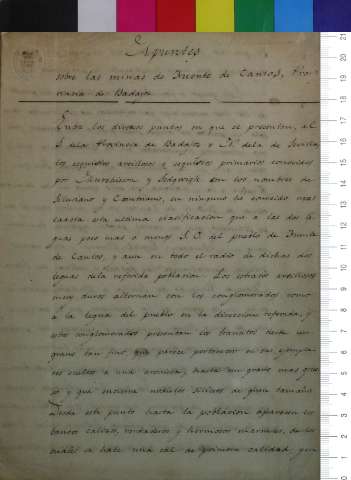 Apuntes
sobre las minas de Fuente de Cantos, Pro-
vincia de Badajoz
Entre los diversos puntos en que se presentan, al
S. de la Provincia de Badajoz y N. de la de Sevilla,
los esquistos arcillosos y esquistos primarios conocidos
por Murchison y Sedgwich con los nombres de
Siluriano y Cambriano, en ninguno he conocido mas
esta ultima clasificacion que a las dos le-
guas poco mas o menos S.O. del pueblo de Fuente
de Cantos, y aun en todo el radio de dichas dos
leguas de la referida poblacion. Los estratos arcillosos
alternan con los conglomerados como
a la legua del pueblo en la direccion referida, y
estos conglomerados presentan los transitos hasta un
grano tan fino, que parece pertenecer
a una arenisca, hasta un grano mas grue-
so y que encierra nodulos siliceos de gran tamaño.
Desde este punto hasta la poblacion aparecen los
bancos calizos, verdaderos y hermosos marmoles, de los
cuales se hace una cal de primera calidad para